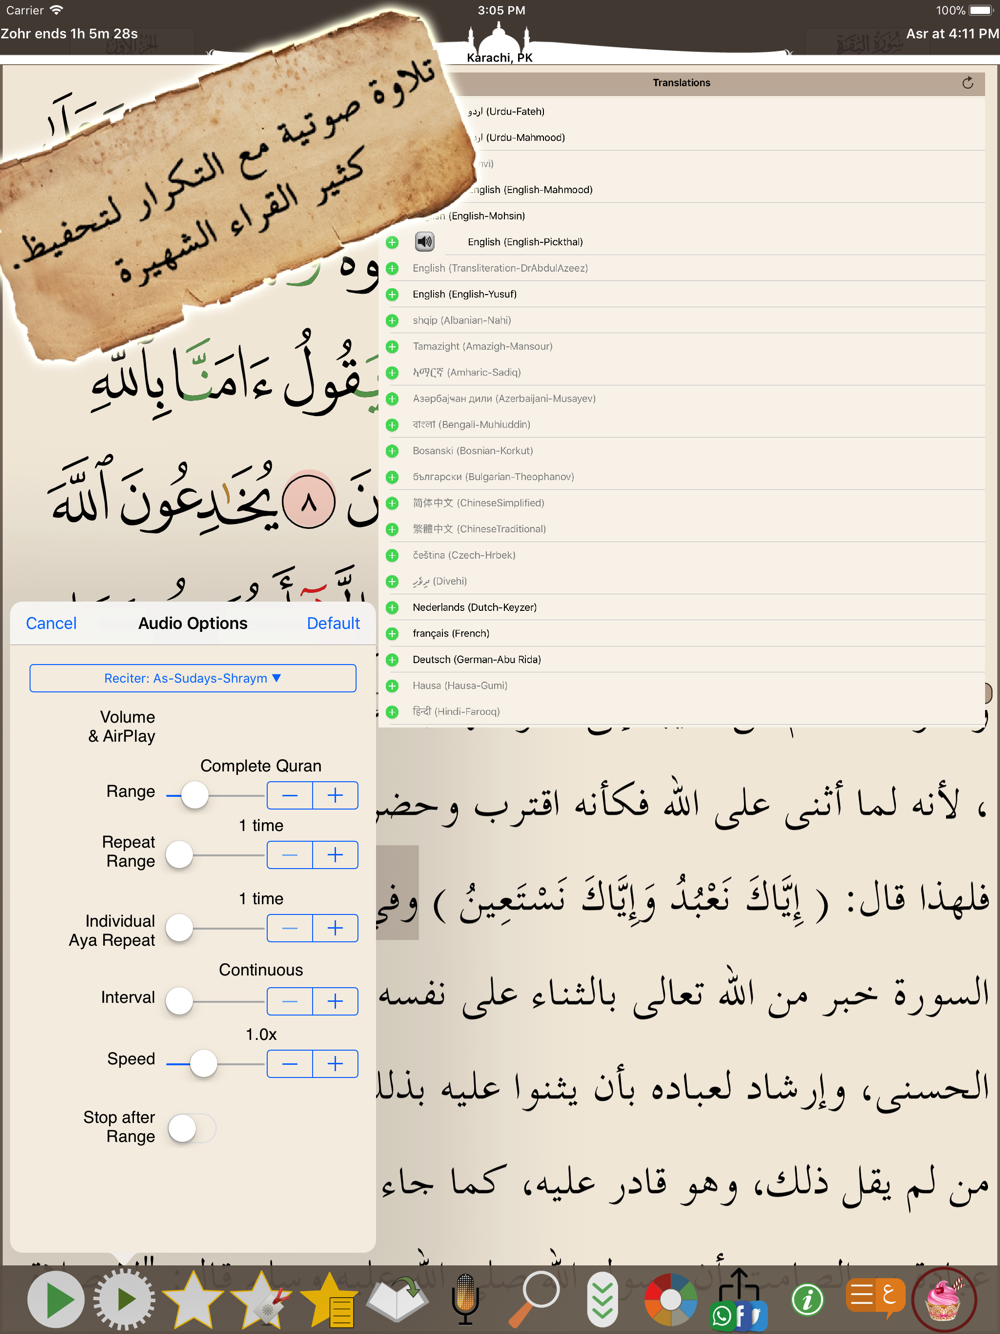 Carrier
3:05 PM
100%
Zohr ends 1h 5m 28s
Asr at 4:11 PM
Karachi, PK
تلاوة صوتية مع التكرار لتحفيظ.
كثير القراء الشهيرة
Translations
اردو (Urdu-Fateh)
(Urdu-Mahmood)
nglish (English-Mahmood)
(English-Mohsin)
English (English-Pickthal)
English (Transliteration-DrAbdulAzeez)
English (English-Yusuf)
shqip (Albanian-Nahi)
Tamazight (Amazigh-Mansour)
አማርኛ (Amharic-Sadiq)
Азәрбајҹан дили (Azerbaijani-Musayev)
বাংলা (Bengali-Muhiuddin)
Bosanski (Bosnian-Korkut)
български (Bulgarian-Theophanov)
简体中文 (ChineseSimplified)
繁體中文 (ChineseTraditional)
čeština (Czech-Hrbek)
(Divehi)
Nederlands (Dutch-Keyzer)
français (French)
Deutsch (German-Abu Rida)
Hausa (Hausa-Gumi)
हिन्दी (Hindi-Farooq)
يَقُولُ ءَامَنَّا بِٱللَّهِ
٨ يُخَٰدِعُونَ ٱللَّهَ
Cancel
Audio Options
Default
Reciter: As-Sudays-Shraym ▼
Volume
& AirPlay
Complete Quran
Range
1 time
Repeat
Range
1 time
Individual
Aya Repeat
Continuous
Interval
1.0x
Speed
Stop after
Range
، لأنه لما أثنى على الله فكأنه اقترب وحضر
فلهذا قال: ( إِيَّاكَ نَعْبُدُ وَإِيَّاكَ نَسْتَعِينُ ) وفي
السورة خبر من الله تعالى بالثناء على نفسه
الحسنى، وإرشاد لعباده بأن يثنوا عليه بذلك
من لم يقل ذلك، وهو قادر عليه، كما جاء